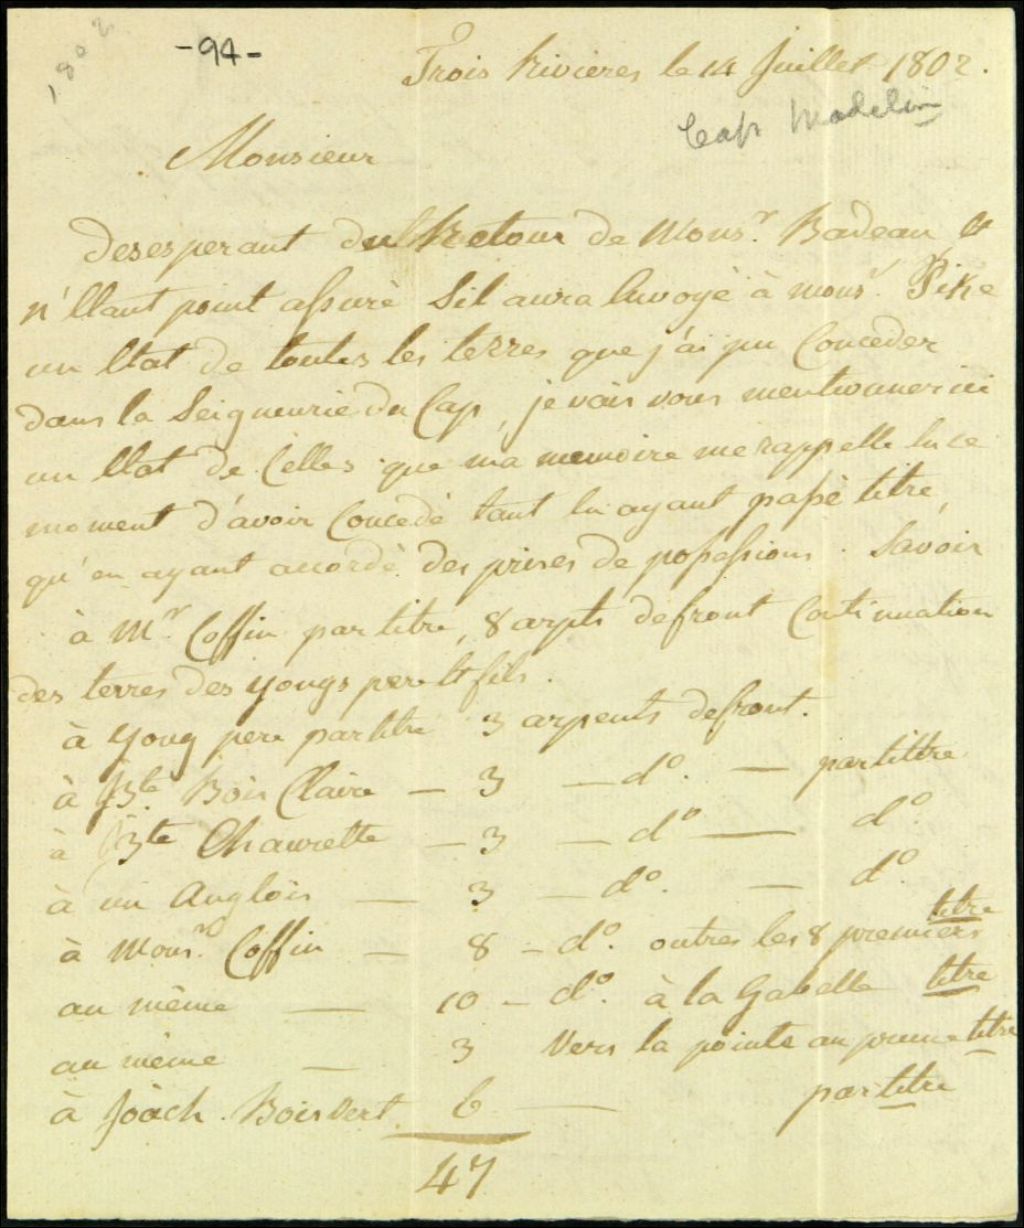 1802
-94-
Trois Rivieres le 14 Juillet 1802.
Cap Madelin
Monsieur
desesperant du Retour de Mons.r Badeau, et
n'Etant point assuré Sil aura Envoyé à mons.r Pike
un Etat de toutes les terres que j'ai pu Conceder
dans la Seigneurie du Cap, je vais vous mentionner ici
un Etat de Celles que ma memoire me rappelle en ce
moment d'avoir Concedé tant en ayant passé titre,
qu'en ayant accordé des prises de possessions. Savoir
à Mr. Coffin par titre, 8 arpts de front Continuation
des terres des yongs pere et fils.
à yong pere par titre 3 arpents de front.
à J Bte. Bois Claire — 3 — do. — par tittre
à J Bte Chaurette — 3 — do — do.
à un Anglois — 3 — do. — do.
titre
à Mons.r Coffin — 8 — do. outres les 8 premiers
au même — 10 — do. à la Gabelle titre
au même — 3 Vers la pointe au prune titre
à Joach. Boisvert 6 — par titre
47